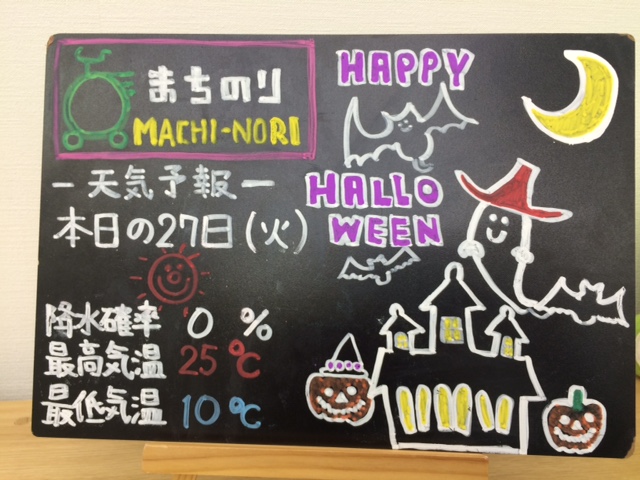 まちのり
MACHI-NORI
－天気予報－
本日の27日(火)
降水確率 0 %
最高気温 25℃
最低気温 10℃
HAPPY
HALLO
WEEN